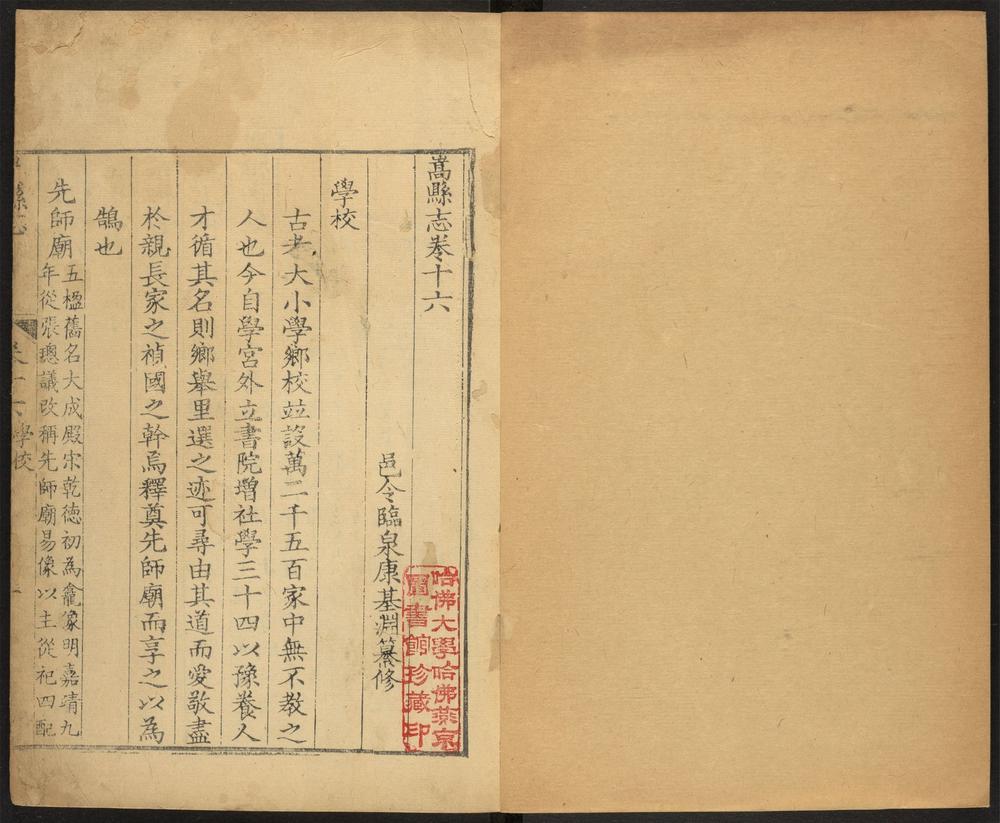 嵩縣志卷十六
邑令臨泉康基淵纂修
學校
古者大小學鄉校並設萬二千五百家中無不教之
人也今自學宮外立書院增社學三十四以豫養人
才循其名則鄉舉里選之迹可尋由其道而愛敬盡
於親長家之禎國之幹焉釋奠先師廟而享之以為
鵠也
先師廟
五楹舊名大成殿宋乾德初為龕像明嘉靖九
年從張璁議改稱先師廟易像以主從祀四配
縣志
卷十六
學校
哈佛大學哈佛燕京
圖書館珍藏印